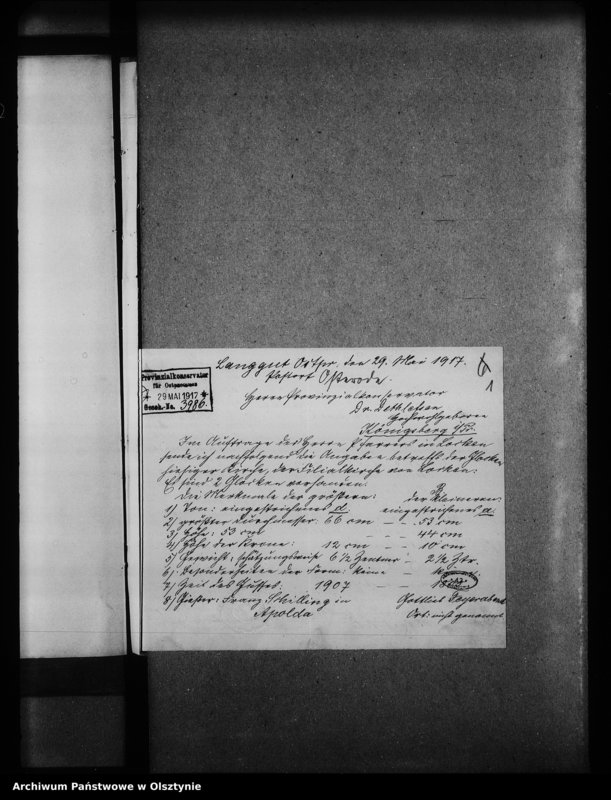 Langgut Ostpr. den 29. Mai 1917.
Postort Osterode.
1
Provinzialkonservator
für Ostpreussen
* 29 MAI 1917 *
Gesch.-No. 3986.
Herrn Provinzialkonservator
Dr. Dethlefsen
Hochwohlgeboren
Königsberg
Im Auftrage des Herrn Pfarrers in Locken
sende ich nachfolgend die Angaben betreffs. der Glocken
hiesiger Kirche, der Filialkirche von Locken:
Es sind 2 Glocken vorhanden:
Die Merkmale der größeren: der kleineren:
1) Ton: eingestrichenes d. eingestrichenes a.
2) größter Durchmesser: 66 cm - 53 cm
3) Höhe: 53 cm - - 44 cm
4) Höhe der Krone: 12 cm - - 10 cm
5) Gewicht: schätzungsweise 6 1/2 Zentner - 2 1/2 Ztr.
6) Besonderheiten der Form: keine - -
7) Zeit des Gusses: 1907 -
8) Gießer: Franz Schilling in Gottlieb
Apolda Ort: nicht genannt
Archiwum Państwowe w Olsztynie